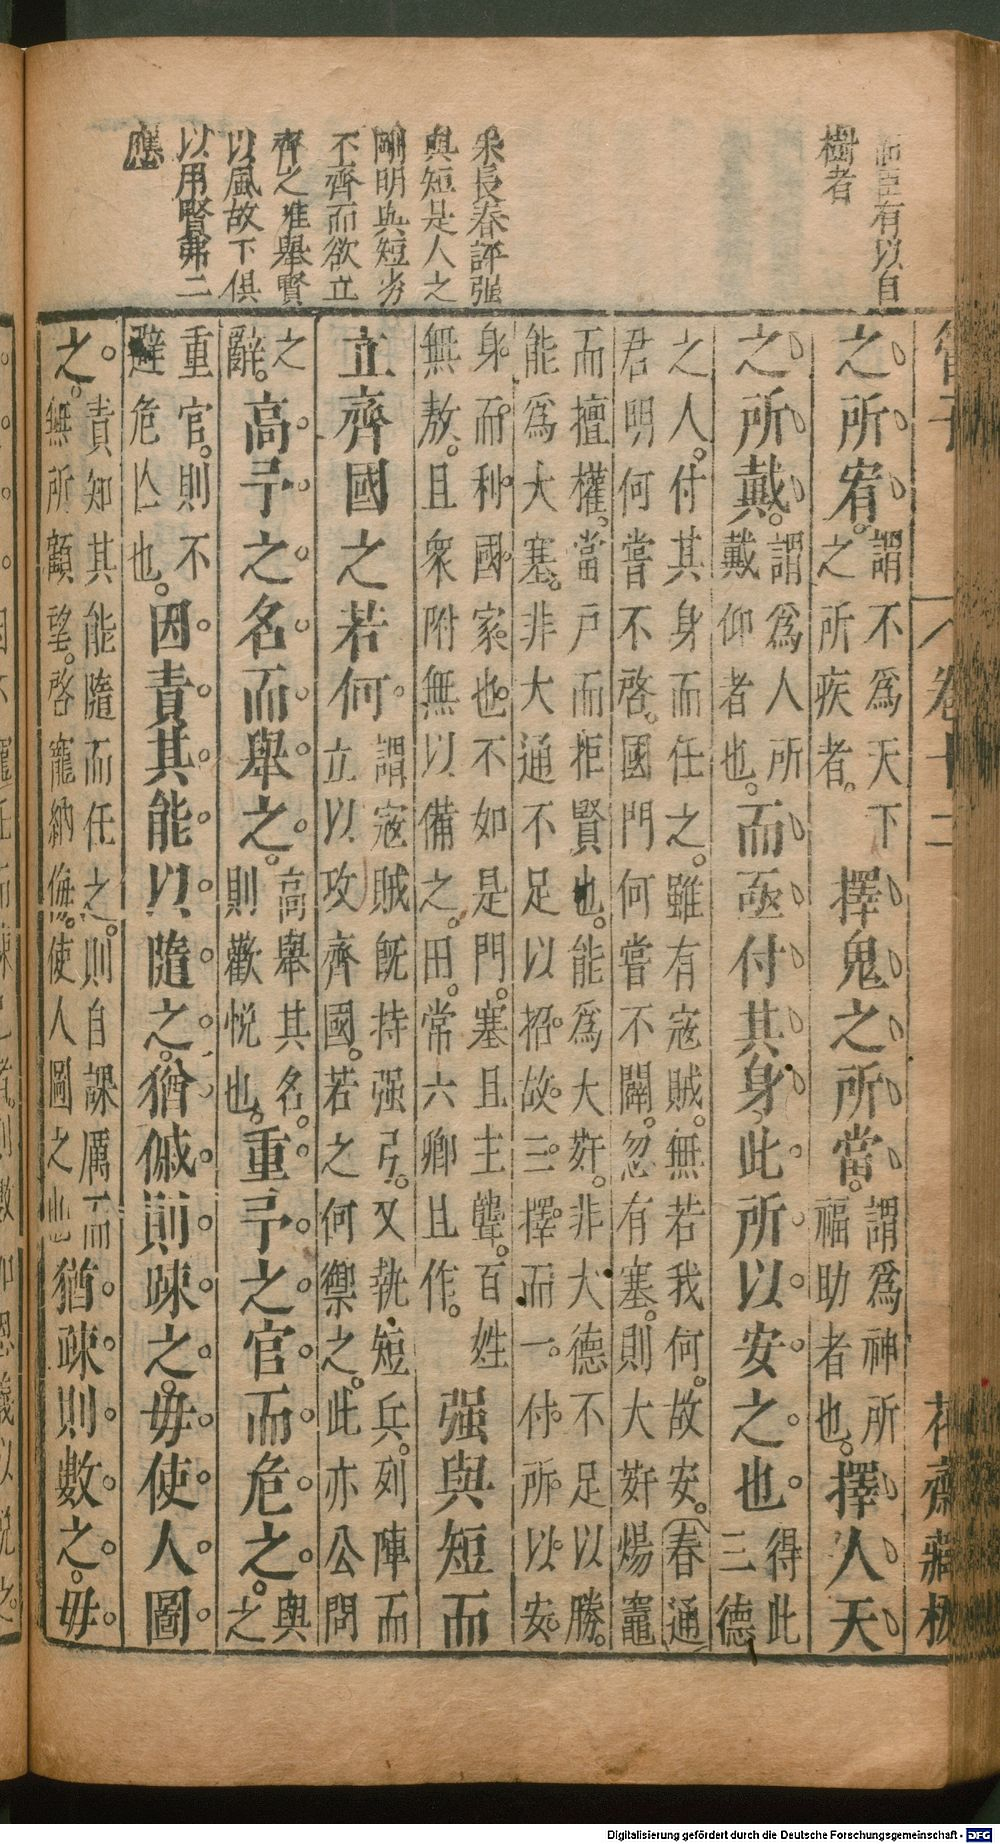 有以自
樹者
朱長春評强
與短是人之
剛明與短劣
不齊而欲立
齊之准舉賢
以風故下俱
以用賢弗二
應
管子
卷十二
花齋藏板
之所宥。謂不爲天下
之所疾者。擇鬼之所當。謂爲神所
福助者也。擇人天
之所戴。謂爲人所
戴仰者也。而亟付其身此所以安之也得此
三德
之人。付其身而任之。雖有寇賊。無若我何。故安。春通
君明何嘗不啓。國門何嘗不闢。忽有塞。則大奸煬竈
而擅權。當戸而拒賢也。能爲大奸。非大德不足以勝。
能爲大塞。非大通不足以招。故三擇而一付所以安
身而利國家也不如是門。塞且主聾。百姓
無敖。且衆附無以備之。田。常六卿且作。强與短而
立齊國之若何謂寇賊既持强弓。又執短兵。列陣而
立以攻齊國。若之何禦之。此亦公問
之
辭。高予之名而舉之。高舉其名。
則歡悅也。重予之官而危之。與之
重官。則不
避危亾也。因責其能以隨之。猶傶則疎之。毋使人圖
之。責知其能隨而任之。則自課厲而
無所顧望。啓寵納侮。使人圖之也猶疎則數之。毋
Digitalisierung gefördert durch die Deutsche Forschungsgemeinschaft - DFG